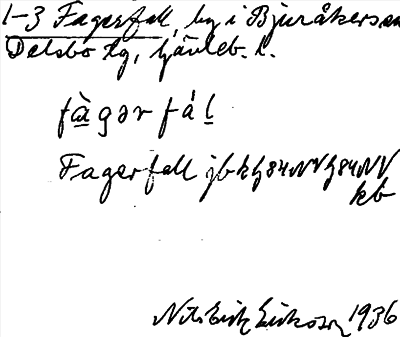 1-3 Fagerfall, by i Bjuråkers sn
Delsbo tg, Gävleb. l.
fàgər fál
Fagerfall jbkg 84 NV g 84 NV
kb
Nils Erik Eriksson 1936